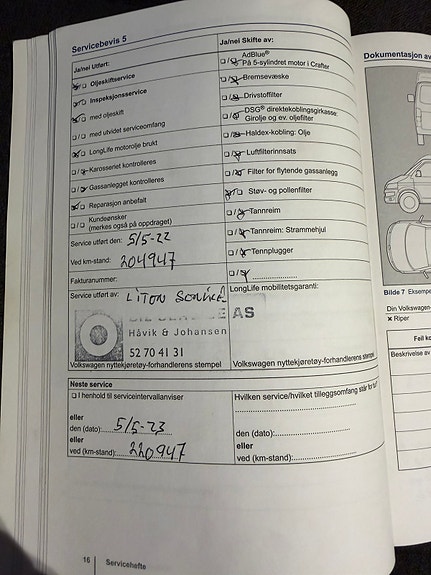 Servicebevis 5
Ja/nei Utført:
Oljeskiftservice
Inspeksjonsservice
med oljeskift
med utvidet serviceomfang
LongLife motorolje brukt
Karosseriet kontrolleres
Gassanlegget kontrolleres
Reparasjon anbefalt
Kundeønsker
(merkes også på oppdraget)
Service utført den: 5/5-22
Ved km-stand: 204947
Fakturanummer:
Service utført av: LITON SERVICE
AS
Håvik & Johansen
52 70 41 31
Volkswagen nyttekjøretøy-forhandlerens stempel
Ja/nei Skifte av:
AdBlue®
På 5-sylindret motor i Crafter
Bremsevæske
Drivstoffilter
DSG® direktekoblingsgirkasse:
Girolje og ev. oljefilter
Haldex-kobling: Olje
Luftfilterinnsats
Filter for flytende gassanlegg
Støv- og pollenfilter
Tannreim
Tannreim: Strammehjul
Tennplugger
LongLife mobilitetsgaranti:
Volkswagen nyttekjøretøy-forhandlerens stempel
Neste service
I henhold til serviceintervallanviser
eller
den (dato): 5/5-23
eller
ved (km-stand): 220947
Hvilken service/hvilket tilleggsomfang står for tur?
den (dato):
eller
ved (km-stand):
16 Servicehefte
Dokumentasjon av
Bilde 7 Eksempe
Din Volkswagen-
× Riper
Feil ko
Beskrivelse av